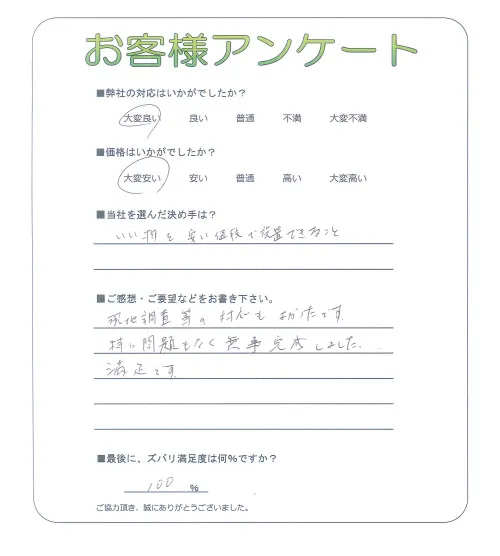 お客様アンケート
■弊社の対応はいかがでしたか？
大変良い 良い 普通 不満 大変不満
■価格はいかがでしたか？
大変安い 安い 普通 高い 大変高い
■当社を選んだ決め手は？
いい物を安い値段で設置できること
■ご感想・ご要望などをお書き下さい。
現地調査等の対応もよかったです。
特に問題もなく無事完成しました。
満足です。
■最後に、ズバリ満足度は何％ですか？
100 ％
ご協力頂き、誠にありがとうございました。